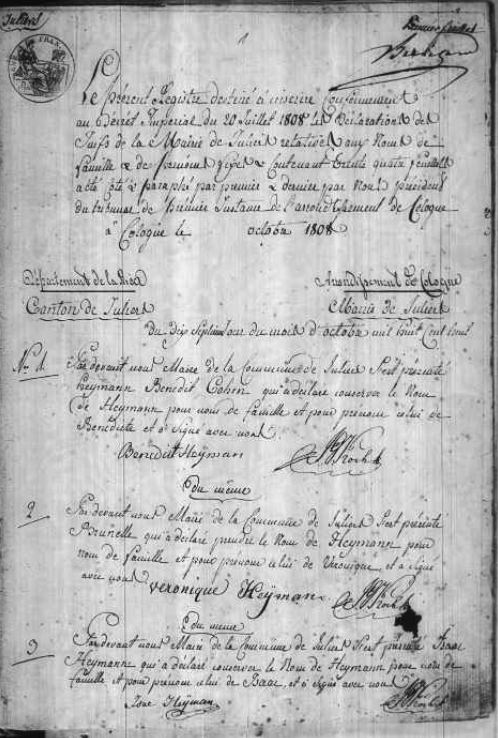 Juliers
1
Premier feuillet
Le présent Registre destiné à inscrire conformément
au Décret Imperial du 20 Juillet 1808 les Déclarations des
Juifs de la Mairie de Juliers relatives aux Noms de
famille & de prénoms fixes & contenant trente quatre feuillets
a été côté & paraphé par premier & dernier par Nous président
du tribunal de Première Instance de l'arrondissement de Cologne
à Cologne le octobre 1808
Département de la Roer
Arrondissement de Cologne
Canton de Juliers
Mairie de Juliers
Du dix Septième jour du mois d'octobre mil huit Cent huit
No. 1. Par devant nous Maire de la Commune de Juliers S'est présenté
Heymann Benedit Cohen qui a déclaré conserver le Nom
de Heymann pour nom de famille et pour prenom celui de
Benedicte et a signé avec nous.
Benedict Heyman
Du même
2 Par devant nous Maire de la Commune de Juliers S'est présenté
Brunelle qui a déclaré prendre le Nom de Heymann pour
nom de famille et pour prenom celui de Veronique, et a signé
avec nous
Veronique Heÿman
Du même
3 Par devant nous Maire de la Commune de Juliers S'est présenté Isaac
Heymann qui a déclaré conserver le Nom de Heymann pour nom de
famille et pour prenom celui de Isaac, et a signé avec nous
Heÿman